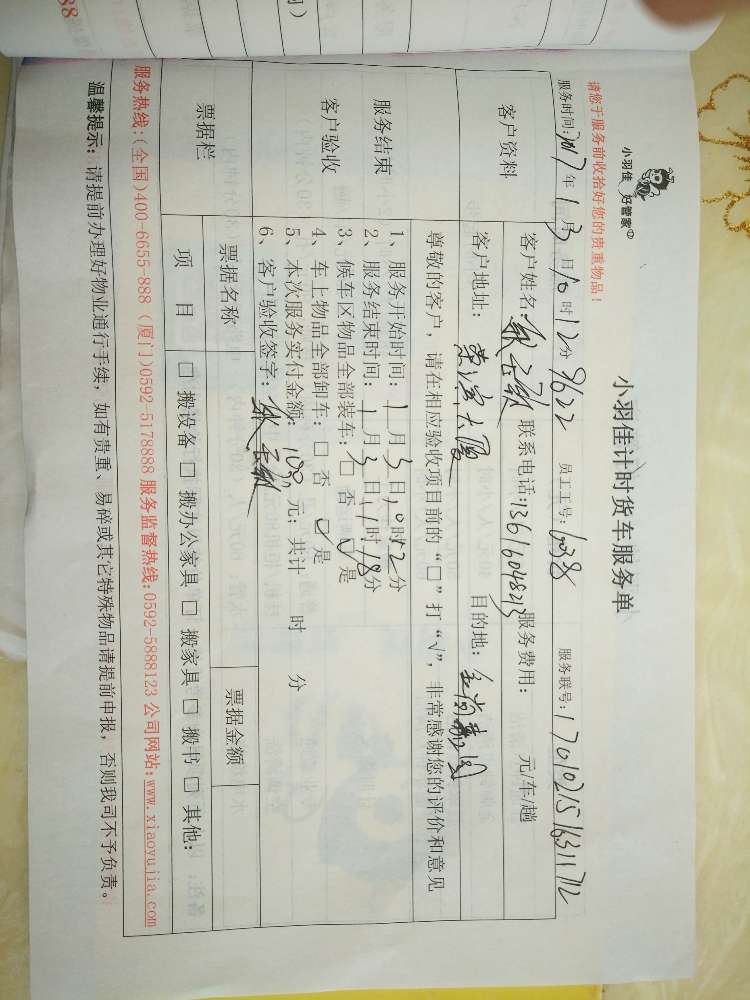 小羽佳 好管家
小羽佳计时货车服务单
请您于服务前收拾好您的贵重物品！
服务时间：2017年1月3日10时12分 8622 员工工号：6038 服务联号：1701021516311712
客户资料
客户姓名： 联系电话：13616048213 服务费用： 元/车/趟
客户地址： 大厦 目的地：
尊敬的客户，请在相应验收项目前的“□”打“√”，非常感谢您的评价和意见
服务结束
客户验收
1、服务开始时间：1月3日10时52分
2、服务结束时间：1月3日11时18分
3、候车区物品全部装车：□ 否 ☑ 是
4、车上物品全部卸车：□ 否 ☑ 是
5、本次服务实付金额：108元；共计 时 分
6、客户验收签字：
票据栏
票据名称 票据金额
项 目 □ 搬设备 □ 搬办公家具 □ 搬家具 □ 搬书 □ 其他：
服务热线：(全国)400-6655-888 (厦门)0592-5178888 服务监督热线：0592-5888123 公司网站：www.xiaoyujia.com
温馨提示：请提前办理好物业通行手续，如有贵重、易碎或其它特殊物品请提前申报，否则我司不予负责。